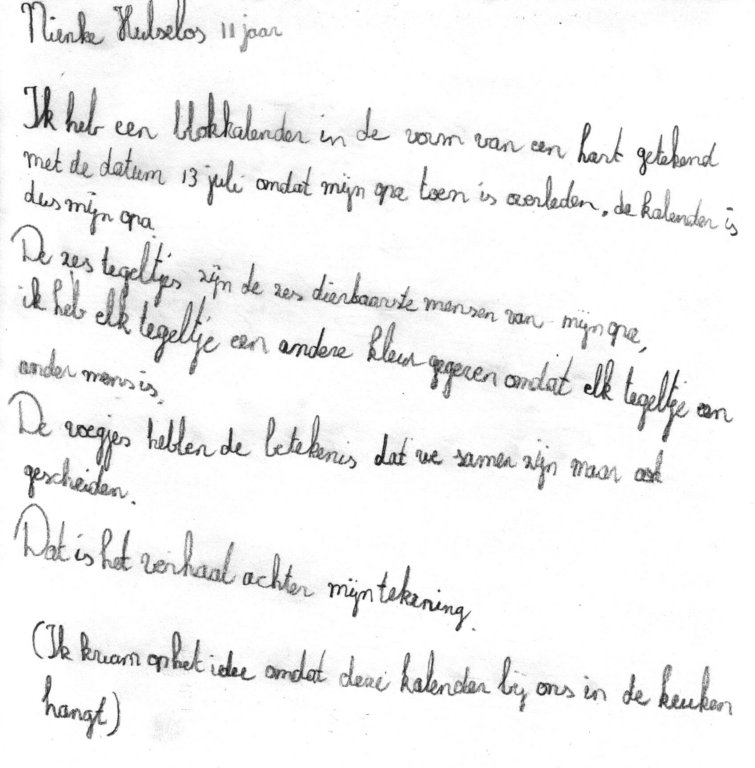 Nienke Hulselos 11 jaar
Ik heb een blokkalender in de vorm van een hart getekend
met de datum 13 juli omdat mijn opa toen is overleden, de kalender is
dus mijn opa.
De zes tegeltjes zijn de zes dierbaarste mensen van mijn opa,
ik heb elk tegeltje een andere kleur gegeven omdat elk tegeltje een
ander mens is.
De voegjes hebben de betekenis dat we samen zijn maar ook
gescheiden.
Dat is het verhaal achter mijn tekening.
(Ik kwam op het idee omdat deze kalender bij ons in de keuken
hangt)